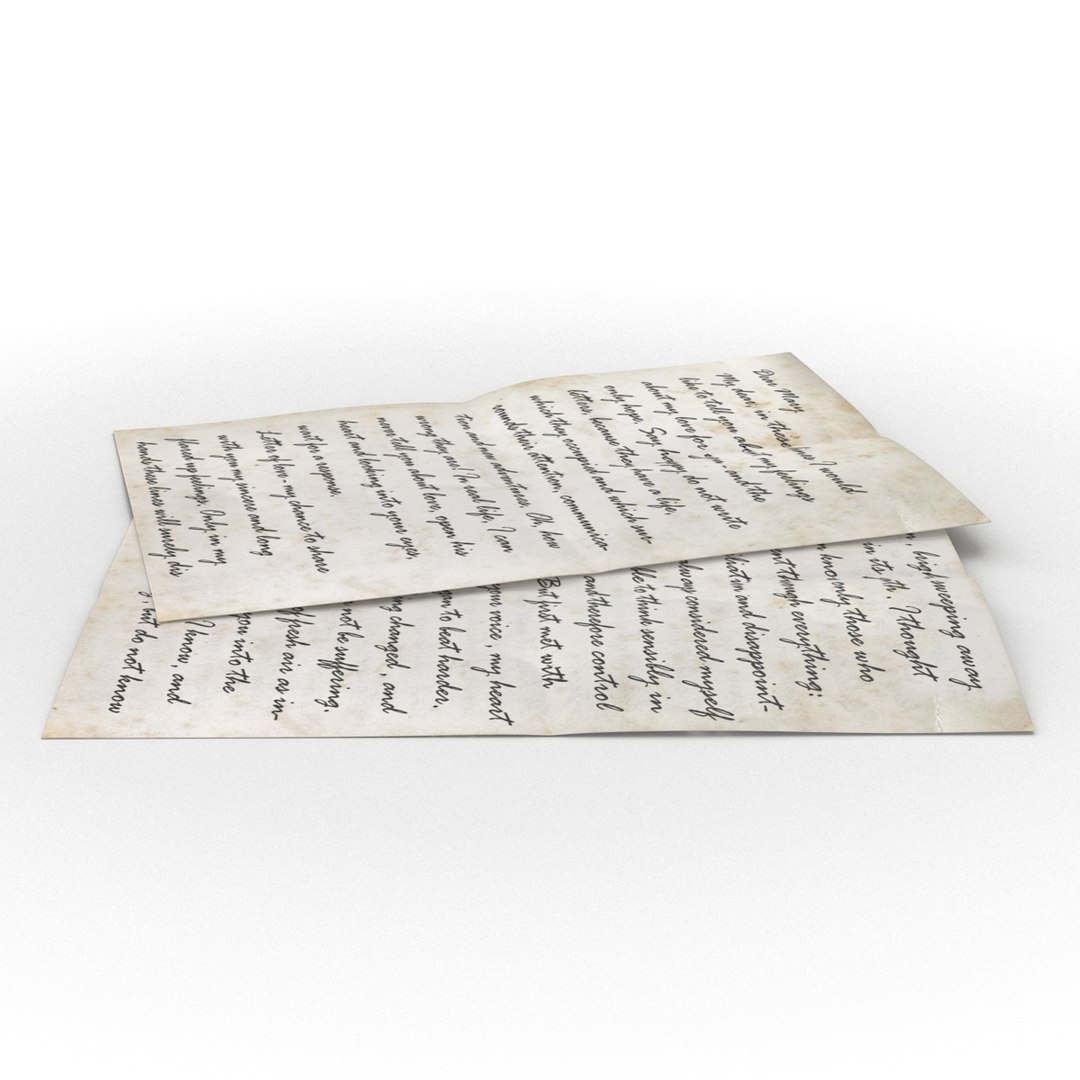 Dear Mary
My dear, in these few I would
like to tell you about my feelings
about my love for you, and the
only hope. Say happy do not write
letters, because they have a life,
which they occupied and which sur-
rounds their attention, communica-
tion and new adventures. Oh, how
wrong they are! In real life, I can
never tell you about love, open his
heart and looking into your eyes,
wait for a response.
Letter of love - my chance to share
with you my sincere and long
flared up feelings. Only in my
hands these lines will surely dis
high sweeping away,
in its path. I thought
know only those who
went through everything:
and disappoint-
always considered myself
to think sensibly, in
and therefore control
But just met with
your voice, my heart
to beat harder,
changed, and
not be suffering.
of fresh air as in-
you into the
I know, and
but do not know